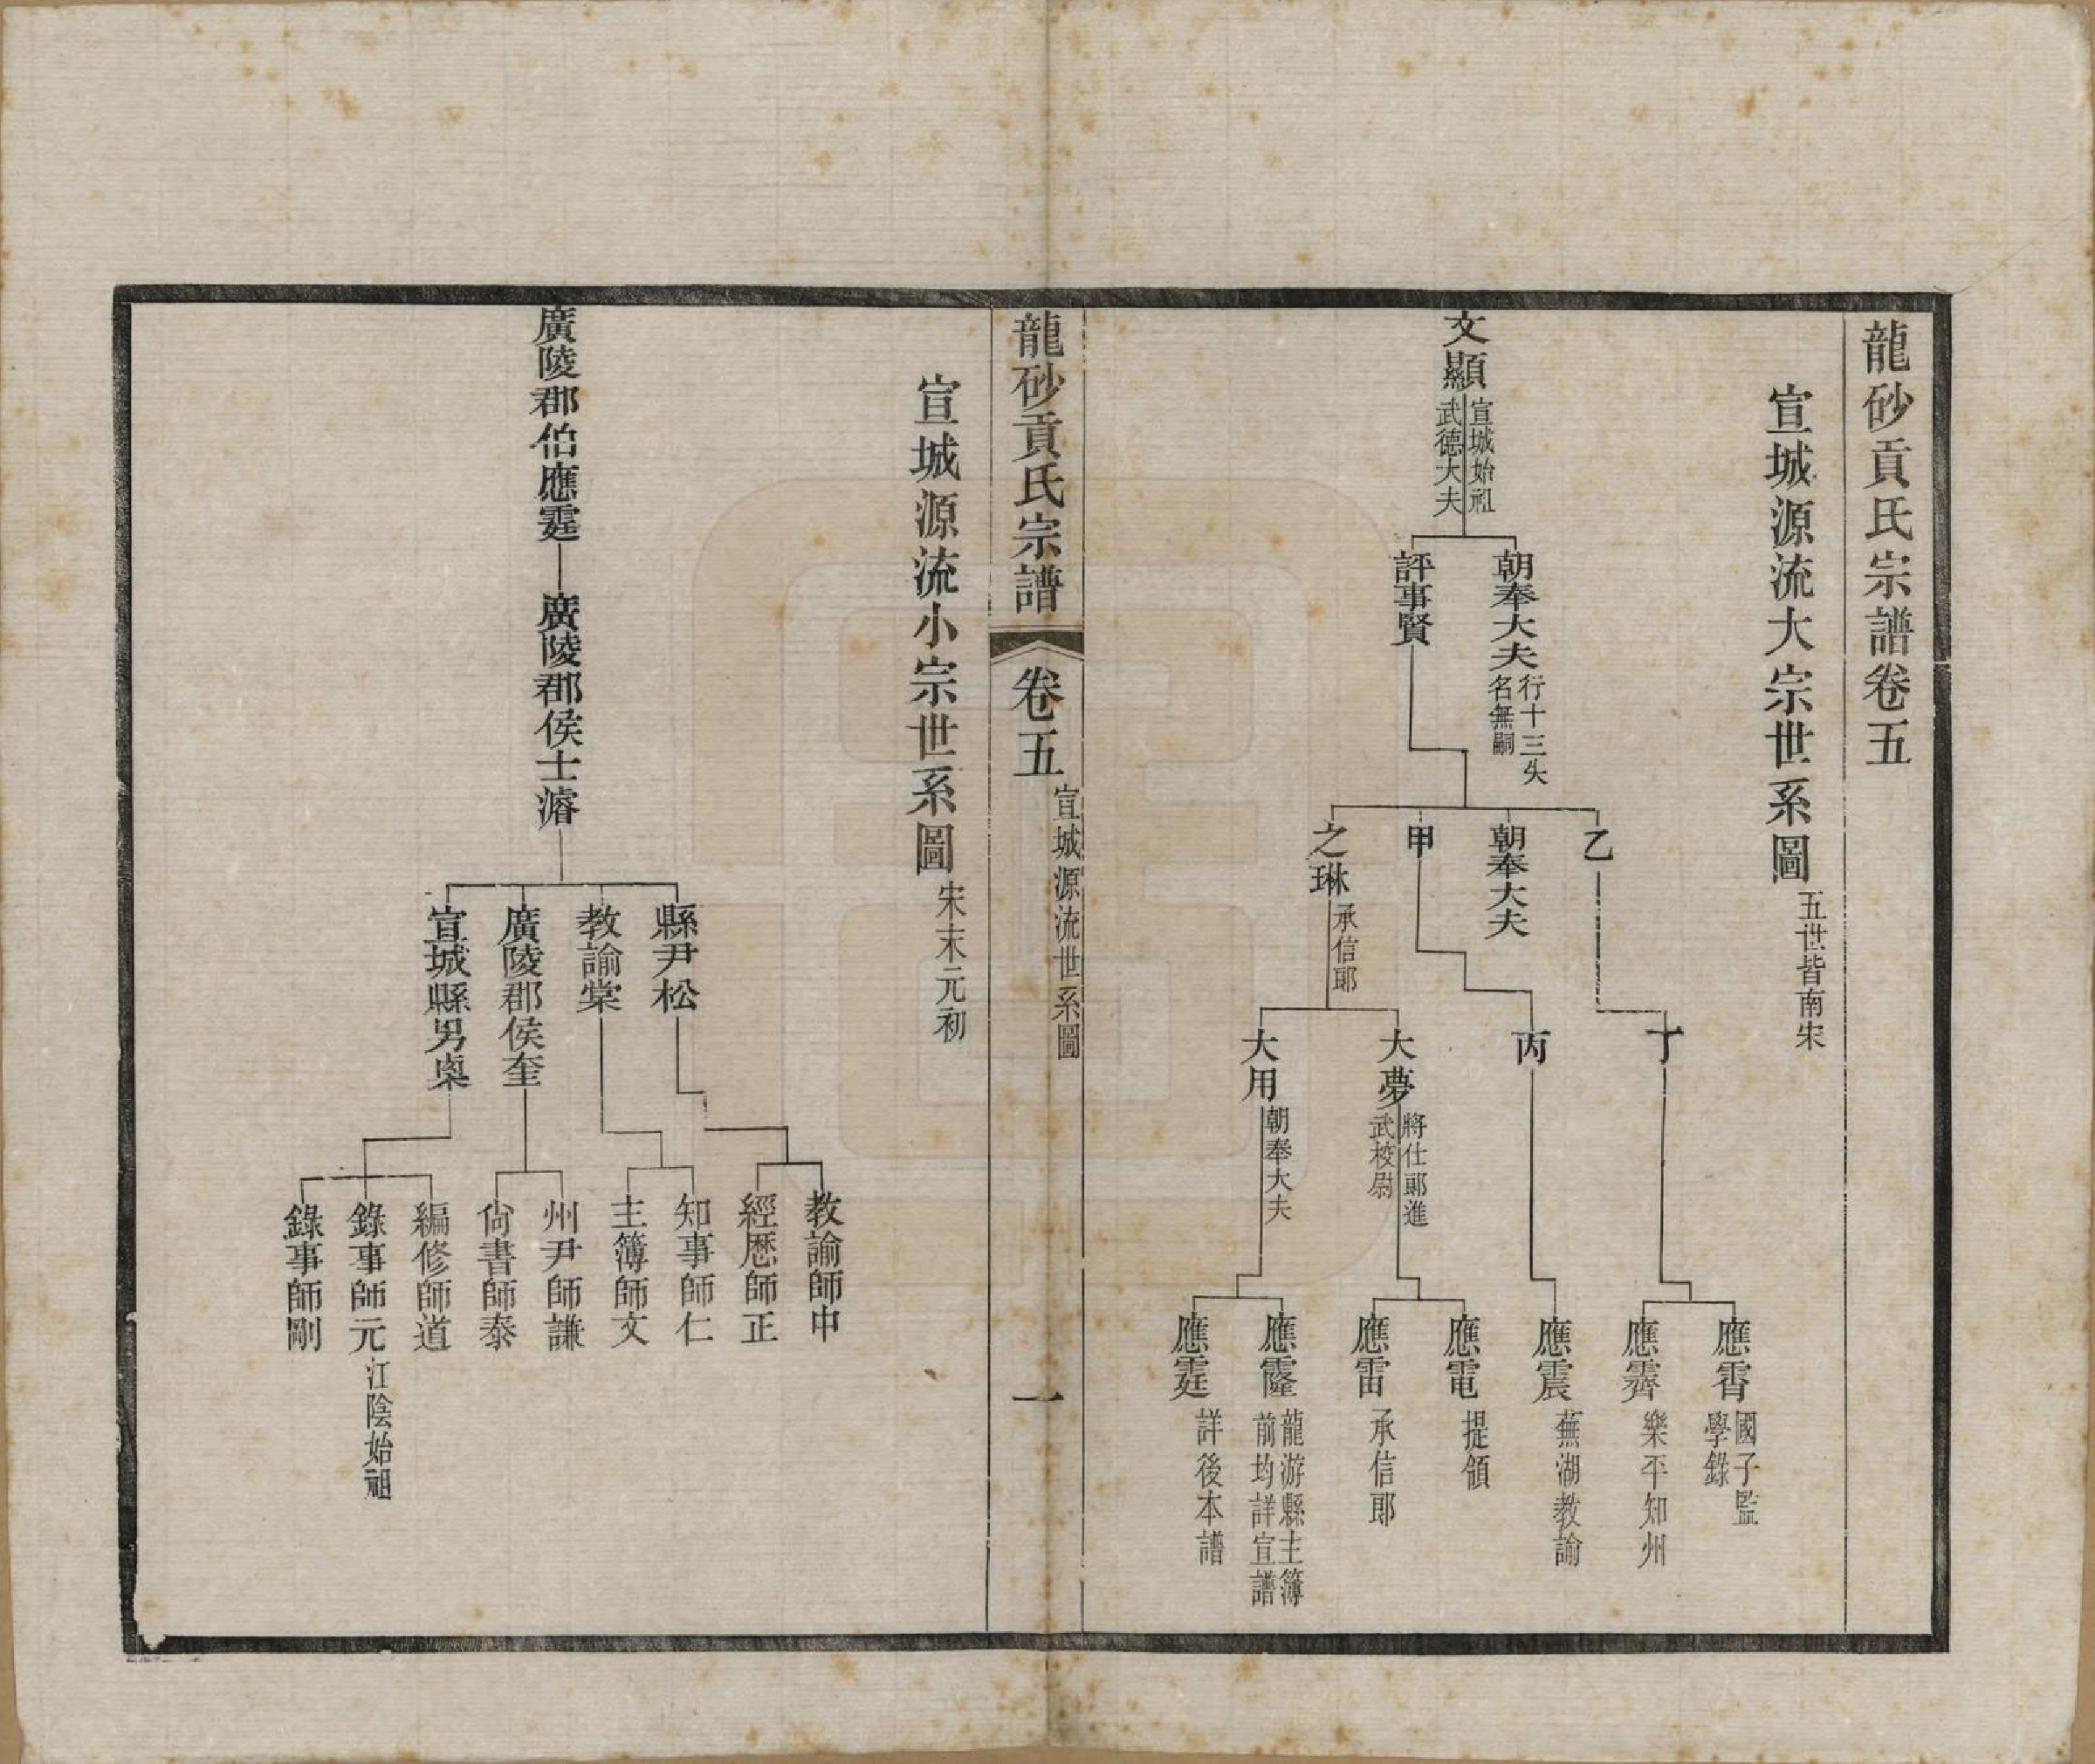 龍砂貢氏宗譜卷五
宣城源流大宗世系圖 五世皆南宋
文顯 宣城始祖武德大夫
朝奉大夫 行十三失名無嗣
評事賢
乙
朝奉大夫
甲
之琳 承信郎
丁
丙
大夢 將仕郎進武校尉
大用 朝奉大夫
應霄 國子監學錄
應霽 樂平知州
應震 蕪湖教諭
應電 提領
應雷 承信郎
應霳 龍游縣主簿前均詳宣譜
應霆 詳後本譜
龍砂貢氏宗譜 卷五 宣城源流世系圖 一
宣城源流小宗世系圖 宋末元初
廣陵郡伯應霆
廣陵郡侯士濬
縣尹松
教諭棠
廣陵郡侯奎
宣城縣男
教諭師中
經歷師正
知事師仁
主簿師文
州尹師謙
尙書師泰
編修師道
錄事師元 江陰始祖
錄事師剛